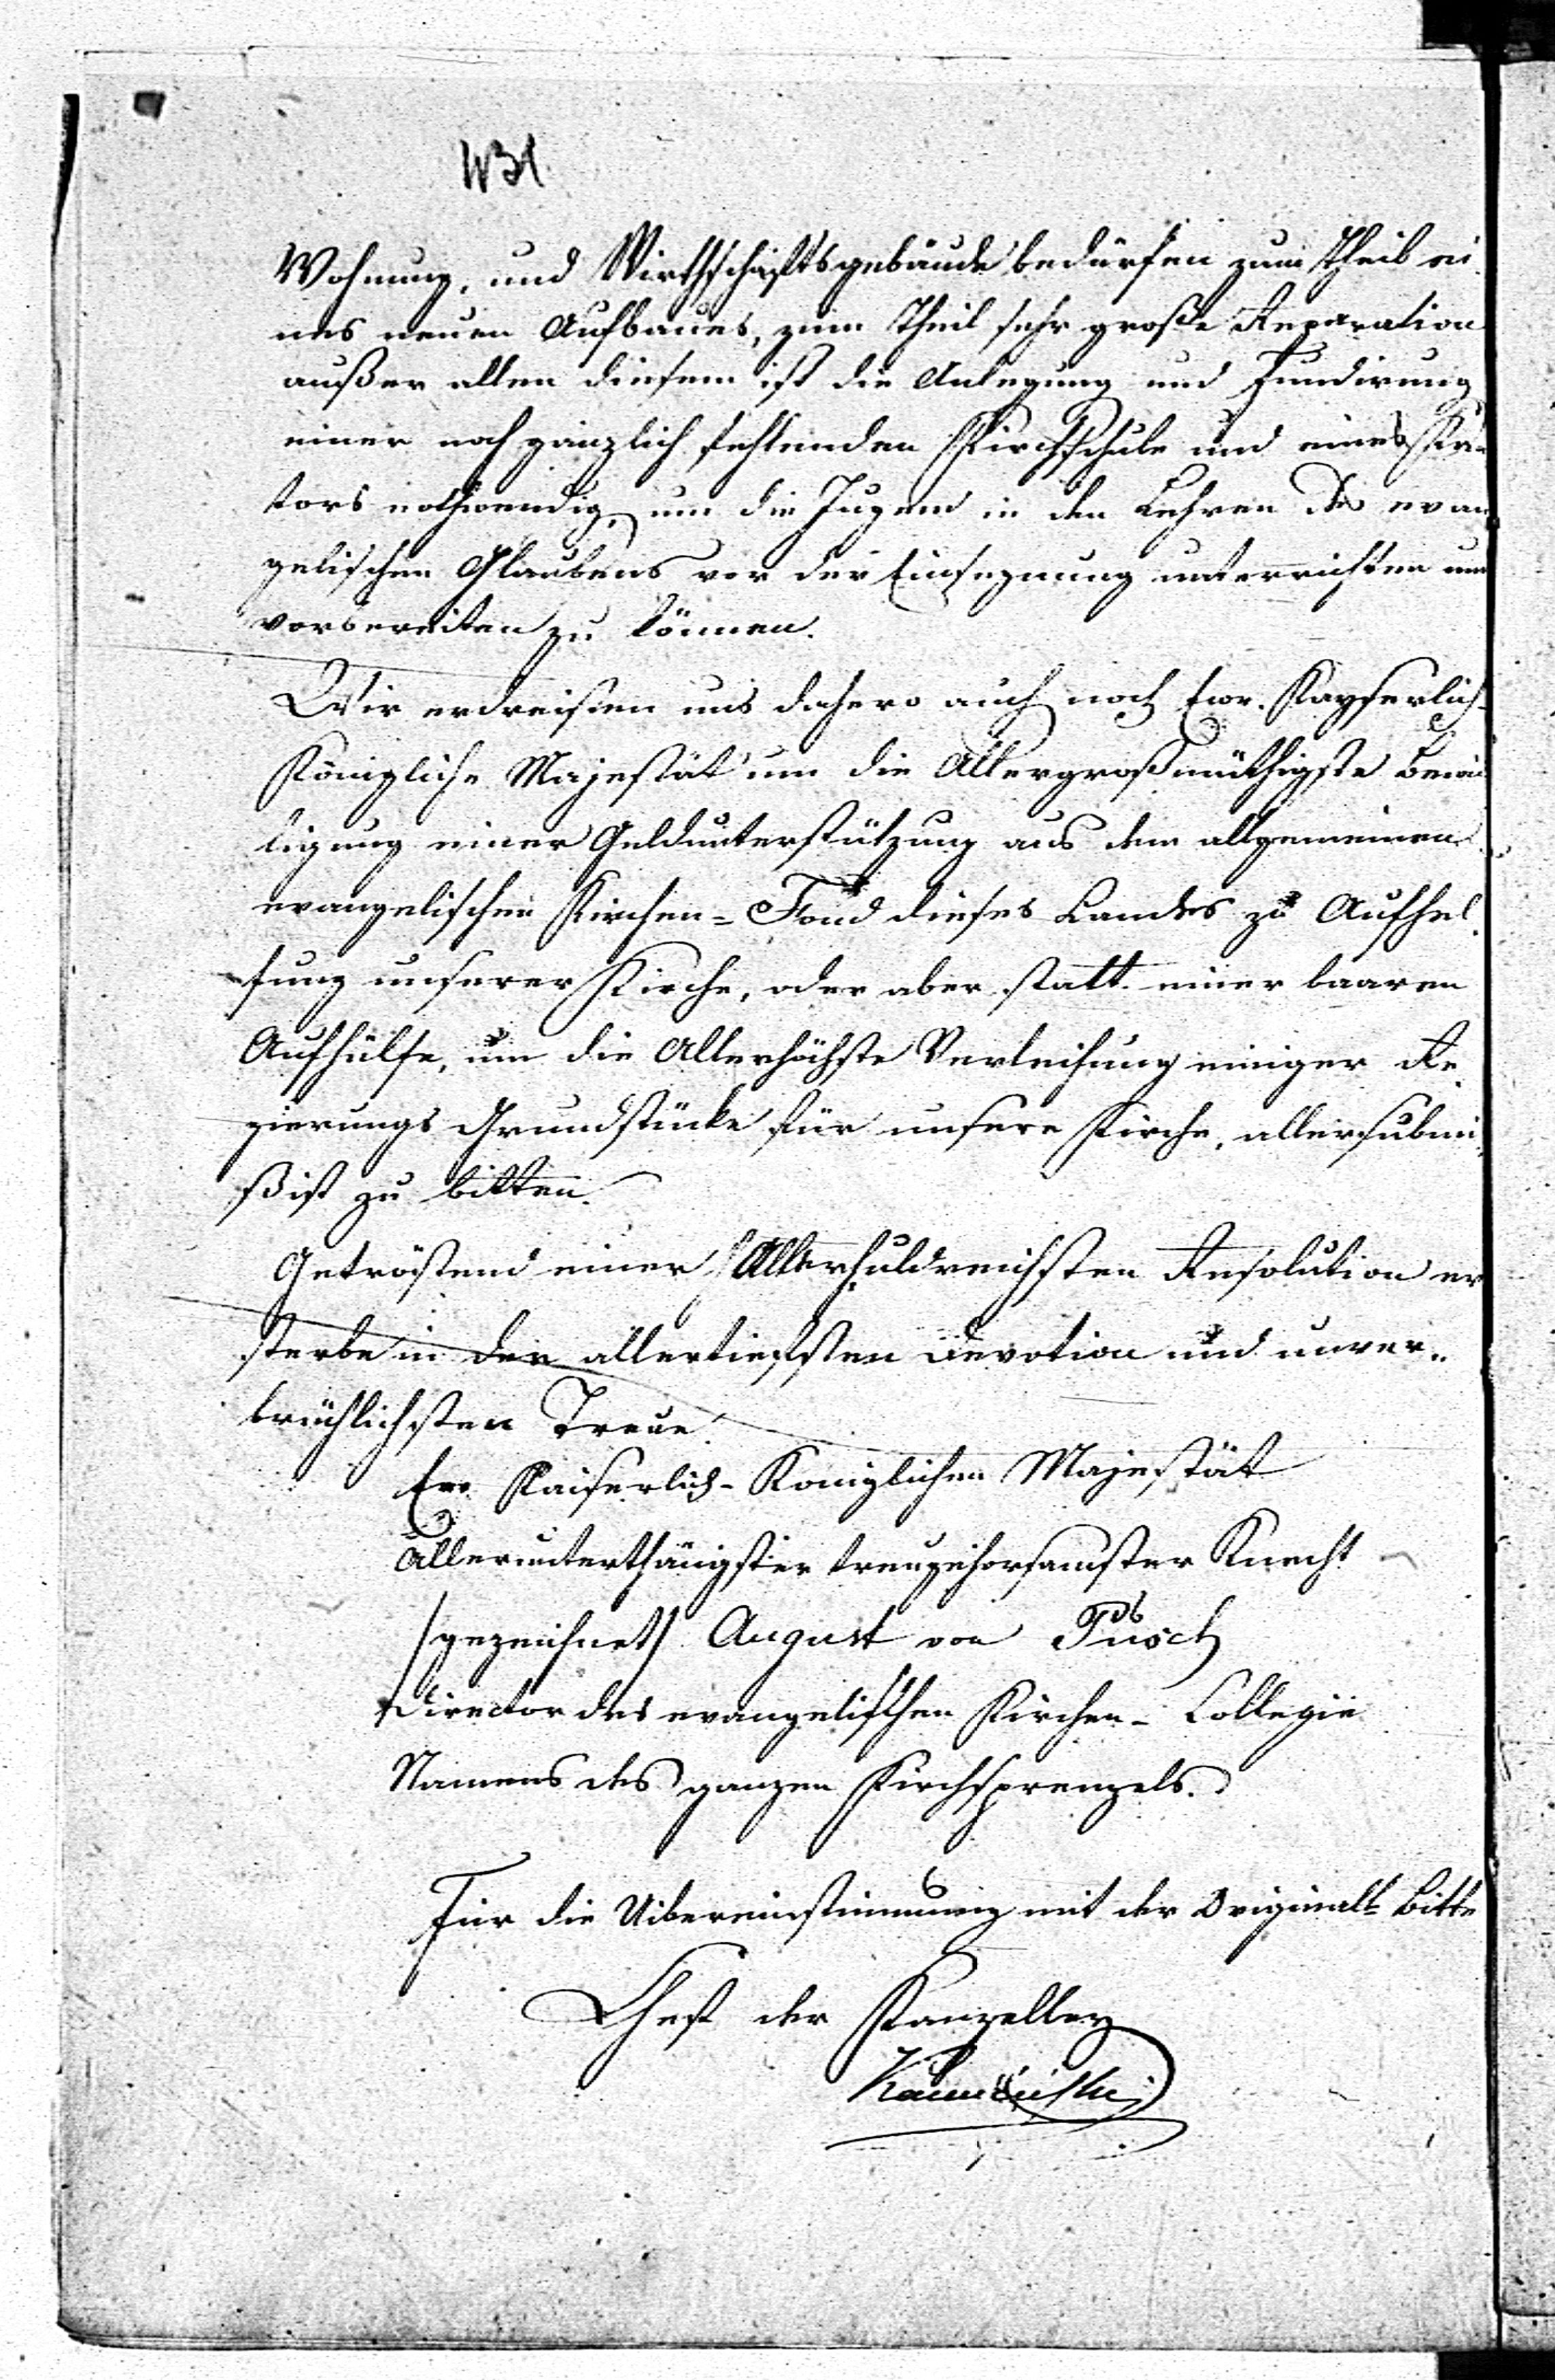 Wohnung, und Wirthschaftsgebäude bedürfen zum Theil ei
nes neuen Aufbaues, zum Theil sehr große Reparation
außer allen diesem ist die Anlegung und Fundirung
einer noch gänzlich fehlenden Kirchschule und eines Kan
tors nothwendig, um die Jugend in den Lehren des evan
gelischen Glaubens vor der Einsegnung unterrichten und
vorbereiten zu können.
Wir erdreisten uns dahero auch noch Ewr. Kayserlich-
Königliche Majestät um die Allergroßmüthigste Bewil
ligung einer Geldunterstützung aus dem allgemeinen
evangelischen Kirchen-Fond dieses Landes zu Aufhel
fung unserer Kirche, oder aber statt einer baaren
Aufhülfe, um die Allerhöchste Verleihung einiger Re
gierungs Grundstücke für unsere Kirche, allersubmi
ßist zu bitten.
Getröstend einer Allerhuldreichsten Resolution er
sterbe in der allertiefsten Devotion und unver-
brüchlichsten Treue.
Ew. Kaiserlich-Koniglichen Majestät
allerunterthänigster treugehorsamster Knecht
/gezeichnet/ August von Pusch
Director des evangelischen Kirchen-Collegii
Namens des ganzen Kirchsprengels.
Für die Uibereinstimmung mit der Originall-Bitte
Chef der Kanzelley